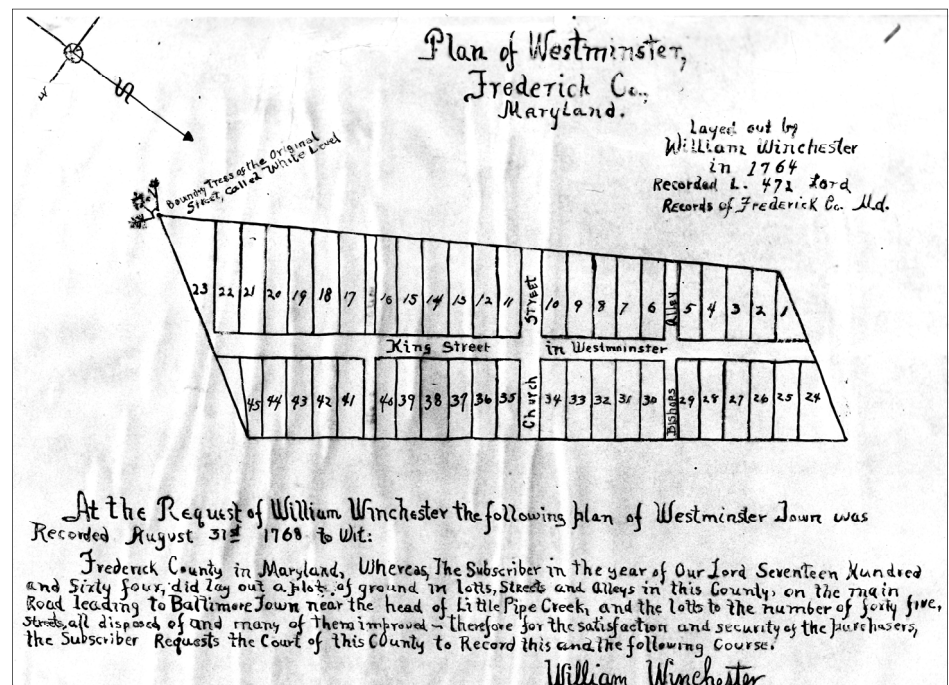 Plan of Westminster,
Frederick Co.,
Maryland.
S
Layed out by
William Winchester
in 1764
Recorded L. 472 Lord
Records of Frederick Co. Md.
Boundry Trees of the Original
Street, Called White Level
23 22 21 20 19 18 17 16 15 14 13 12 11 Street 10 9 8 7 6 Alley 5 4 3 2 1
King Street in Westminster
45 44 43 42 41 40 39 38 37 36 35 Church 34 33 32 31 30 Bishops 29 28 27 26 25 24
At the Request of William Winchester the following plan of Westminster Town was
Recorded August 31st 1768 to Wit:
Frederick County in Maryland, Whereas, The Subscriber in the year of Our Lord Seventeen Hundred
and Sixty four, did lay out a plot of ground in lotts, Streets and Alleys in this County, on the main
Road leading to Baltimore Town near the head of Little Pipe Creek, and the lotts to the number of forty five,
Streets, all disposed of and many of them improved - therefore for the satisfaction and security of the purchasers,
the Subscriber Requests the Court of this County to Record this and the following Course.
William Winchester